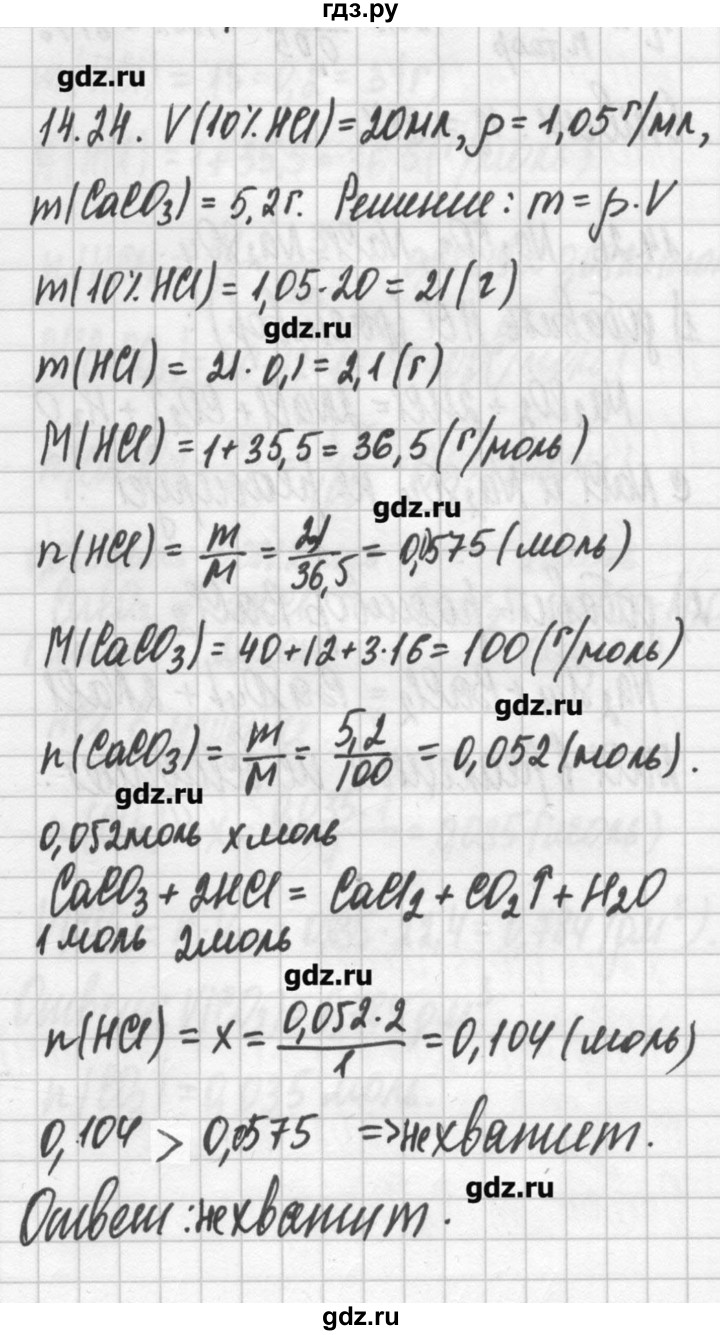 гдз.ру
gdz.ru
14.24. V(10% HCl) = 20 мл, ρ = 1,05 г/мл,
m(CaCO₃) = 5,2 г. Решение: m = ρ·V
m(10% HCl) = 1,05·20 = 21 (г)
gdz.ru
m(HCl) = 21·0,1 = 2,1 (г)
M(HCl) = 1+35,5 = 36,5 (г/моль)
gdz.ru
n(HCl) = m/M = 21/36,5 = 0,0575 (моль)
M(CaCO₃) = 40+12+3·16 = 100 (г/моль)
gdz.ru
n(CaCO₃) = m/M = 5,2/100 = 0,052 (моль).
gdz.ru
0,052 моль x моль
CaCO₃ + 2HCl = CaCl₂ + CO₂↑ + H₂O
1 моль 2 моль
gdz.ru
n(HCl) = x = 0,052·2/1 = 0,104 (моль)
0,104 > 0,0575 => не хватит.
gdz.ru
Ответ: не хватит.
gdz.ru